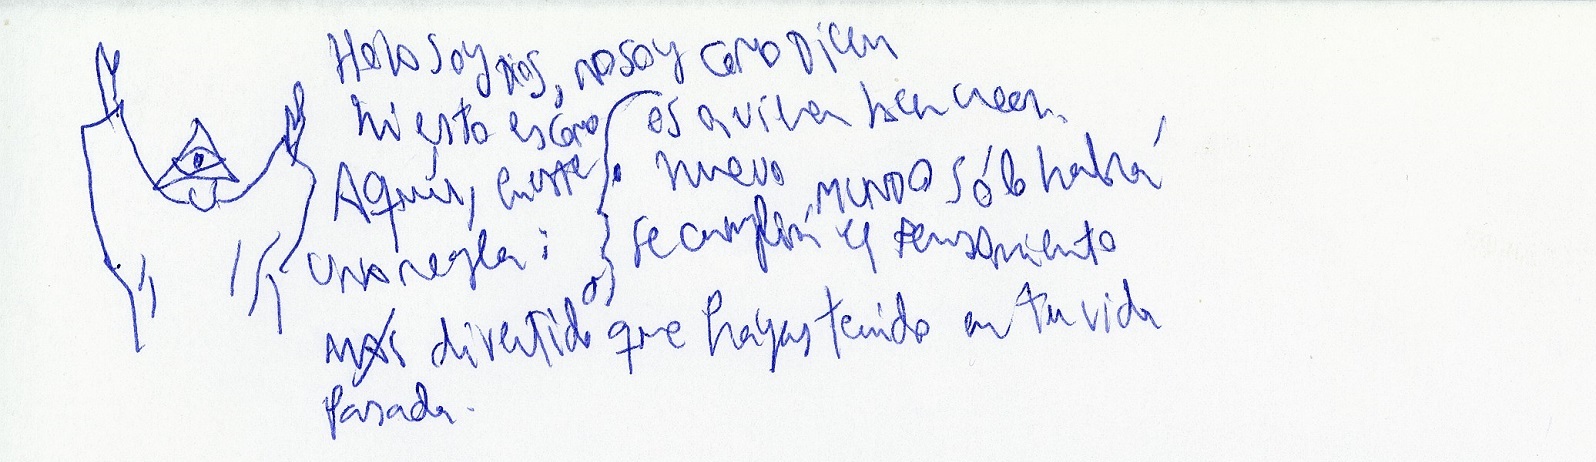 Hola soy Dios, no soy como Dicen
Ni esto es como os a vivian hen creen.
Aquís, en este nuevo MUNDO sólo habrá
una regla: Se cumplirá el Pensamiento
MÁS divertido que hayas tenido en tu vida
Pasada.